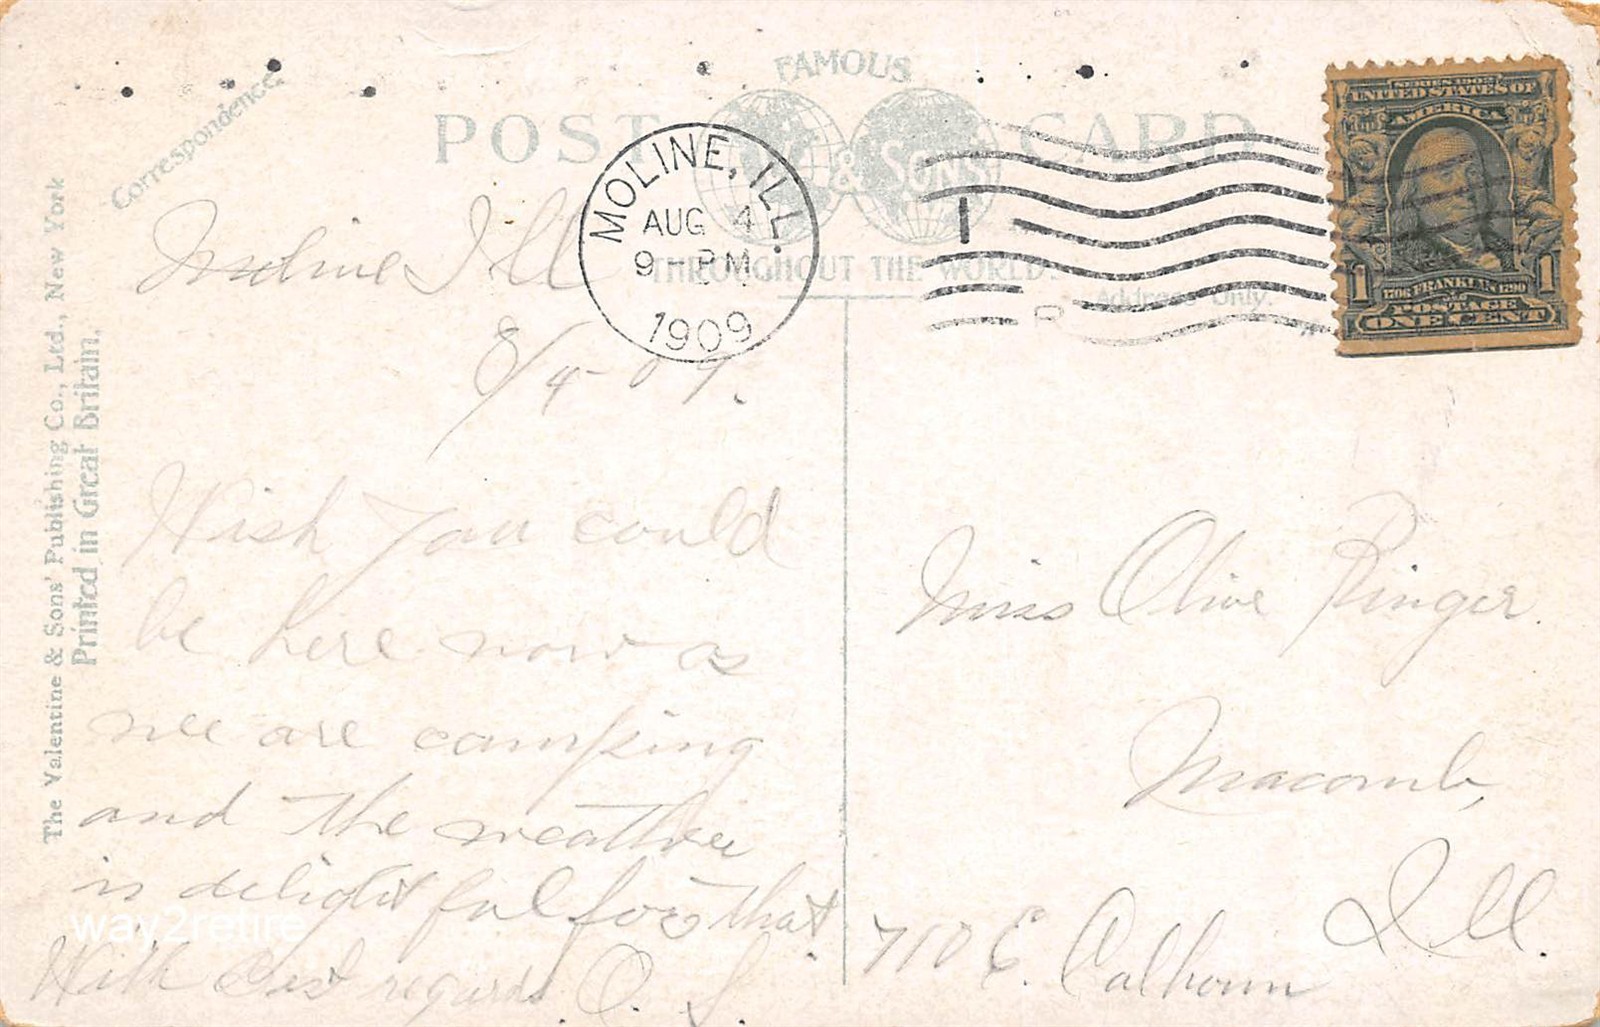 Correspondence.
FAMOUS
POST CARD
& SONS
THROUGHOUT THE WORLD.
Address Only.
MOLINE, ILL.
AUG 4
9 - PM
1909
1
SERIES 1902
UNITED STATES OF
AMERICA
1706 FRANKLIN 1790
1 1
POSTAGE
ONE CENT
The Valentine & Sons' Publishing Co., Ltd., New York
Printed in Great Britain.
Moline Ill
8/4-09.
Wish you could
be here now as
we are camping
and the weather
is delightful for that
With best regards O. S.
Miss Olive Ringer.
Macomb,
Ill.
710 E. Calhoun
way2retire